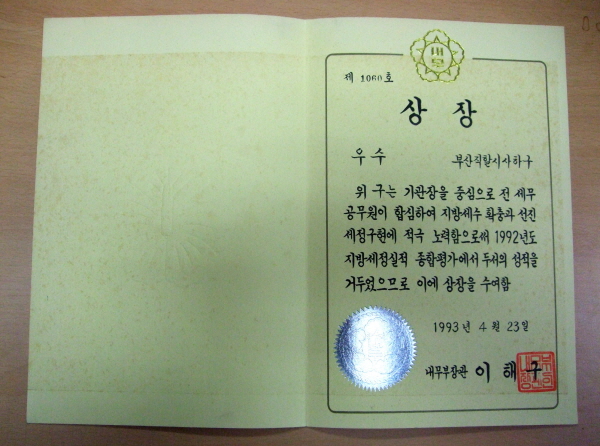 내무
제 1060 호
상 장
우 수 부산직할시사하구
위 구는 기관장을 중심으로 전 세무
공무원이 합심하여 지방세수 확충과 선진
세정구현에 적극 노력함으로써 1992년도
지방세정실적 종합평가에서 두서의 성적을
거두었으므로 이에 상장을 수여함
1993 년 4 월 23 일
내무부장관 이 해 구